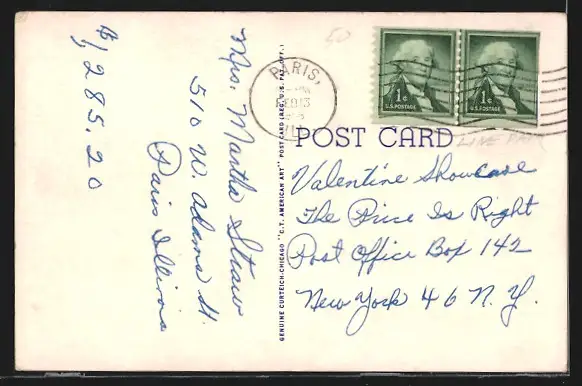 $1,285.20
Mrs. Martha Straw
510 W. Adams St.
Paris Illinois
GENUINE CURTEICH-CHICAGO "C.T. AMERICAN ART" POST CARD (REG. U.S. PAT. OFF.)
50
PARIS,
FEB 13
ILL.
1¢
U.S. POSTAGE
1¢
U.S. POSTAGE
LINE PAIR
POST CARD
Valentine Showcase
The Price Is Right
Post Office Box 142
New York 46 N.Y.